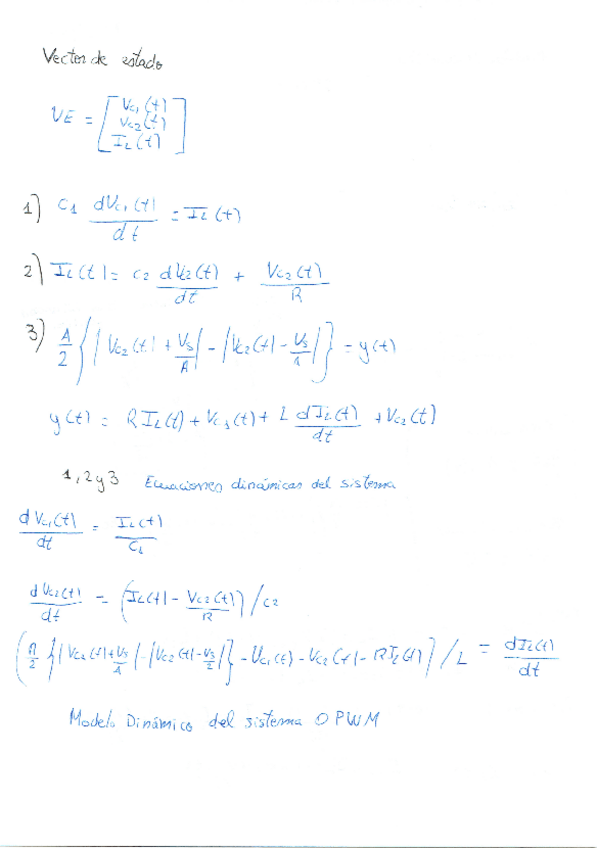 Vector de estado
VE = [ Vc1(t)
Vc2(t)
IL(t) ]
1) C1 dVc1(t)/dt = IL(t)
2) IL(t) = C2 dVc2(t)/dt + Vc2(t)/R
3) A/2 { |Vc2(t) + Vs/A| - |Vc2(t) - Vs/A| } = y(t)
y(t) = R IL(t) + Vc1(t) + L dIL(t)/dt + Vc2(t)
1, 2 y 3 Ecuaciones dinámicas del sistema
dVc1(t)/dt = IL(t)/C1
dVc2(t)/dt = (IL(t) - Vc2(t)/R) / C2
(A/2 { |Vc2(t) + Vs/A| - |Vc2(t) - Vs/A| } - Vc1(t) - Vc2(t) - R IL(t)) / L = dIL(t)/dt
Modelo Dinámico del sistema OPWM